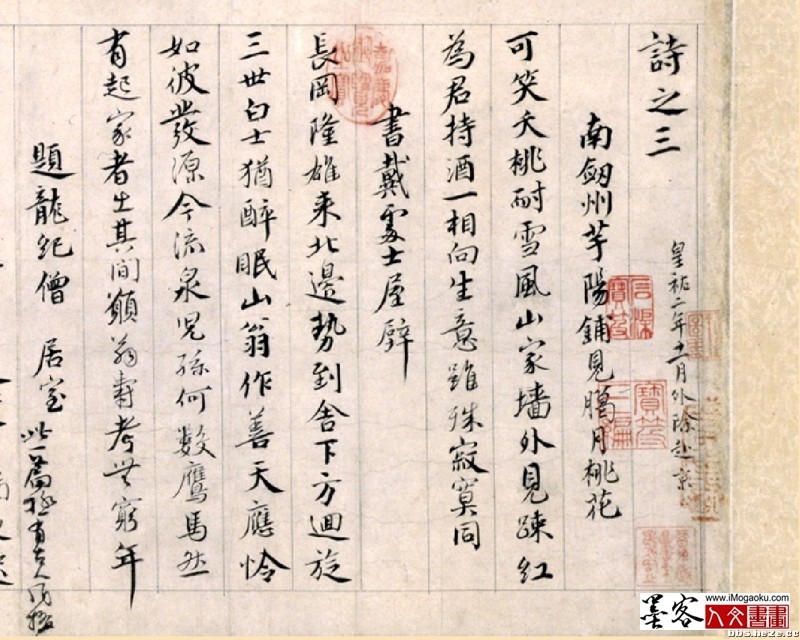 詩之三
皇祐二年十一月外除赴京
南劔州芋陽鋪見臘月桃花
可笑夭桃耐雪風山家墻外見踈紅
為君持酒一相向生意雖殊寂寞同
書戴處士屋壁
長岡隆雄来北邊勢到舍下方迴旋
三世白士猶醉眠山翁作善天應怜
如彼發源今流泉兒孫何數鷹馬然
有起家者出其間願翁壽考無窮年
題龍紀僧居室
此一篇極有古人風格
墨客人文書畫
www.iMogaoku.com
bbs.heze.cc